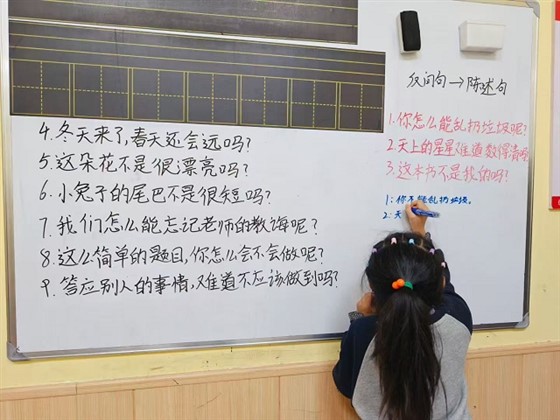 4.冬天来了,春天还会远吗?
5.这朵花不是很漂亮吗?
6.小兔子的尾巴不是很短吗?
7.我们怎么能忘记老师的教诲呢?
8.这么简单的题目,你怎么会不会做呢?
9.答应别人的事情,难道不应该做到吗?
反问句→陈述句
1.你怎么能乱扔垃圾呢?
2.天上的星星难道数得清吗
3.这本书不是我的吗?
1:你不能乱扔垃圾。
2:天